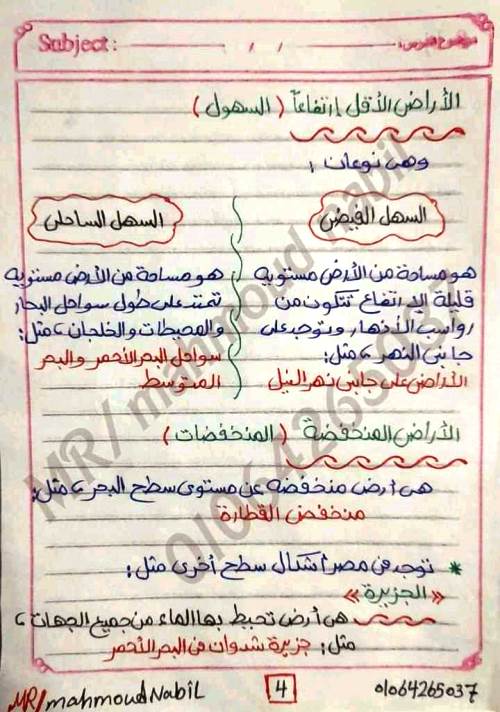 Subject: / /
موضوع الدرس:
الأراضي الأقل إرتفاعاً (السهول)
وهي نوعان:
السهل الفيضي
هو مساحة من الأرض مستوية
قليلة الإرتفاع تتكون من
رواسب الأنهار وتوجد على
جانبي النهر، مثل:
الأراضي على جانبي نهر النيل
السهل الساحلي
هو مساحة من الأرض مستوية
تمتد على طول سواحل البحار
والمحيطات والخلجان، مثل:
سواحل البحر الأحمر والبحر
المتوسط
الأراضي المنخفضة (المنخفضات)
هي أرض منخفضة عن مستوى سطح البحر، مثل:
منخفض القطارة
* توجد في مصر أشكال سطح أخرى مثل:
«الجزيرة»
هي أرض تحيط بها الماء من جميع الجهات،
مثل: جزيرة شدوان في البحر الأحمر
MR/mahmoud Nabil
4
01064265037
MR/mahmoud nabil
01064265037